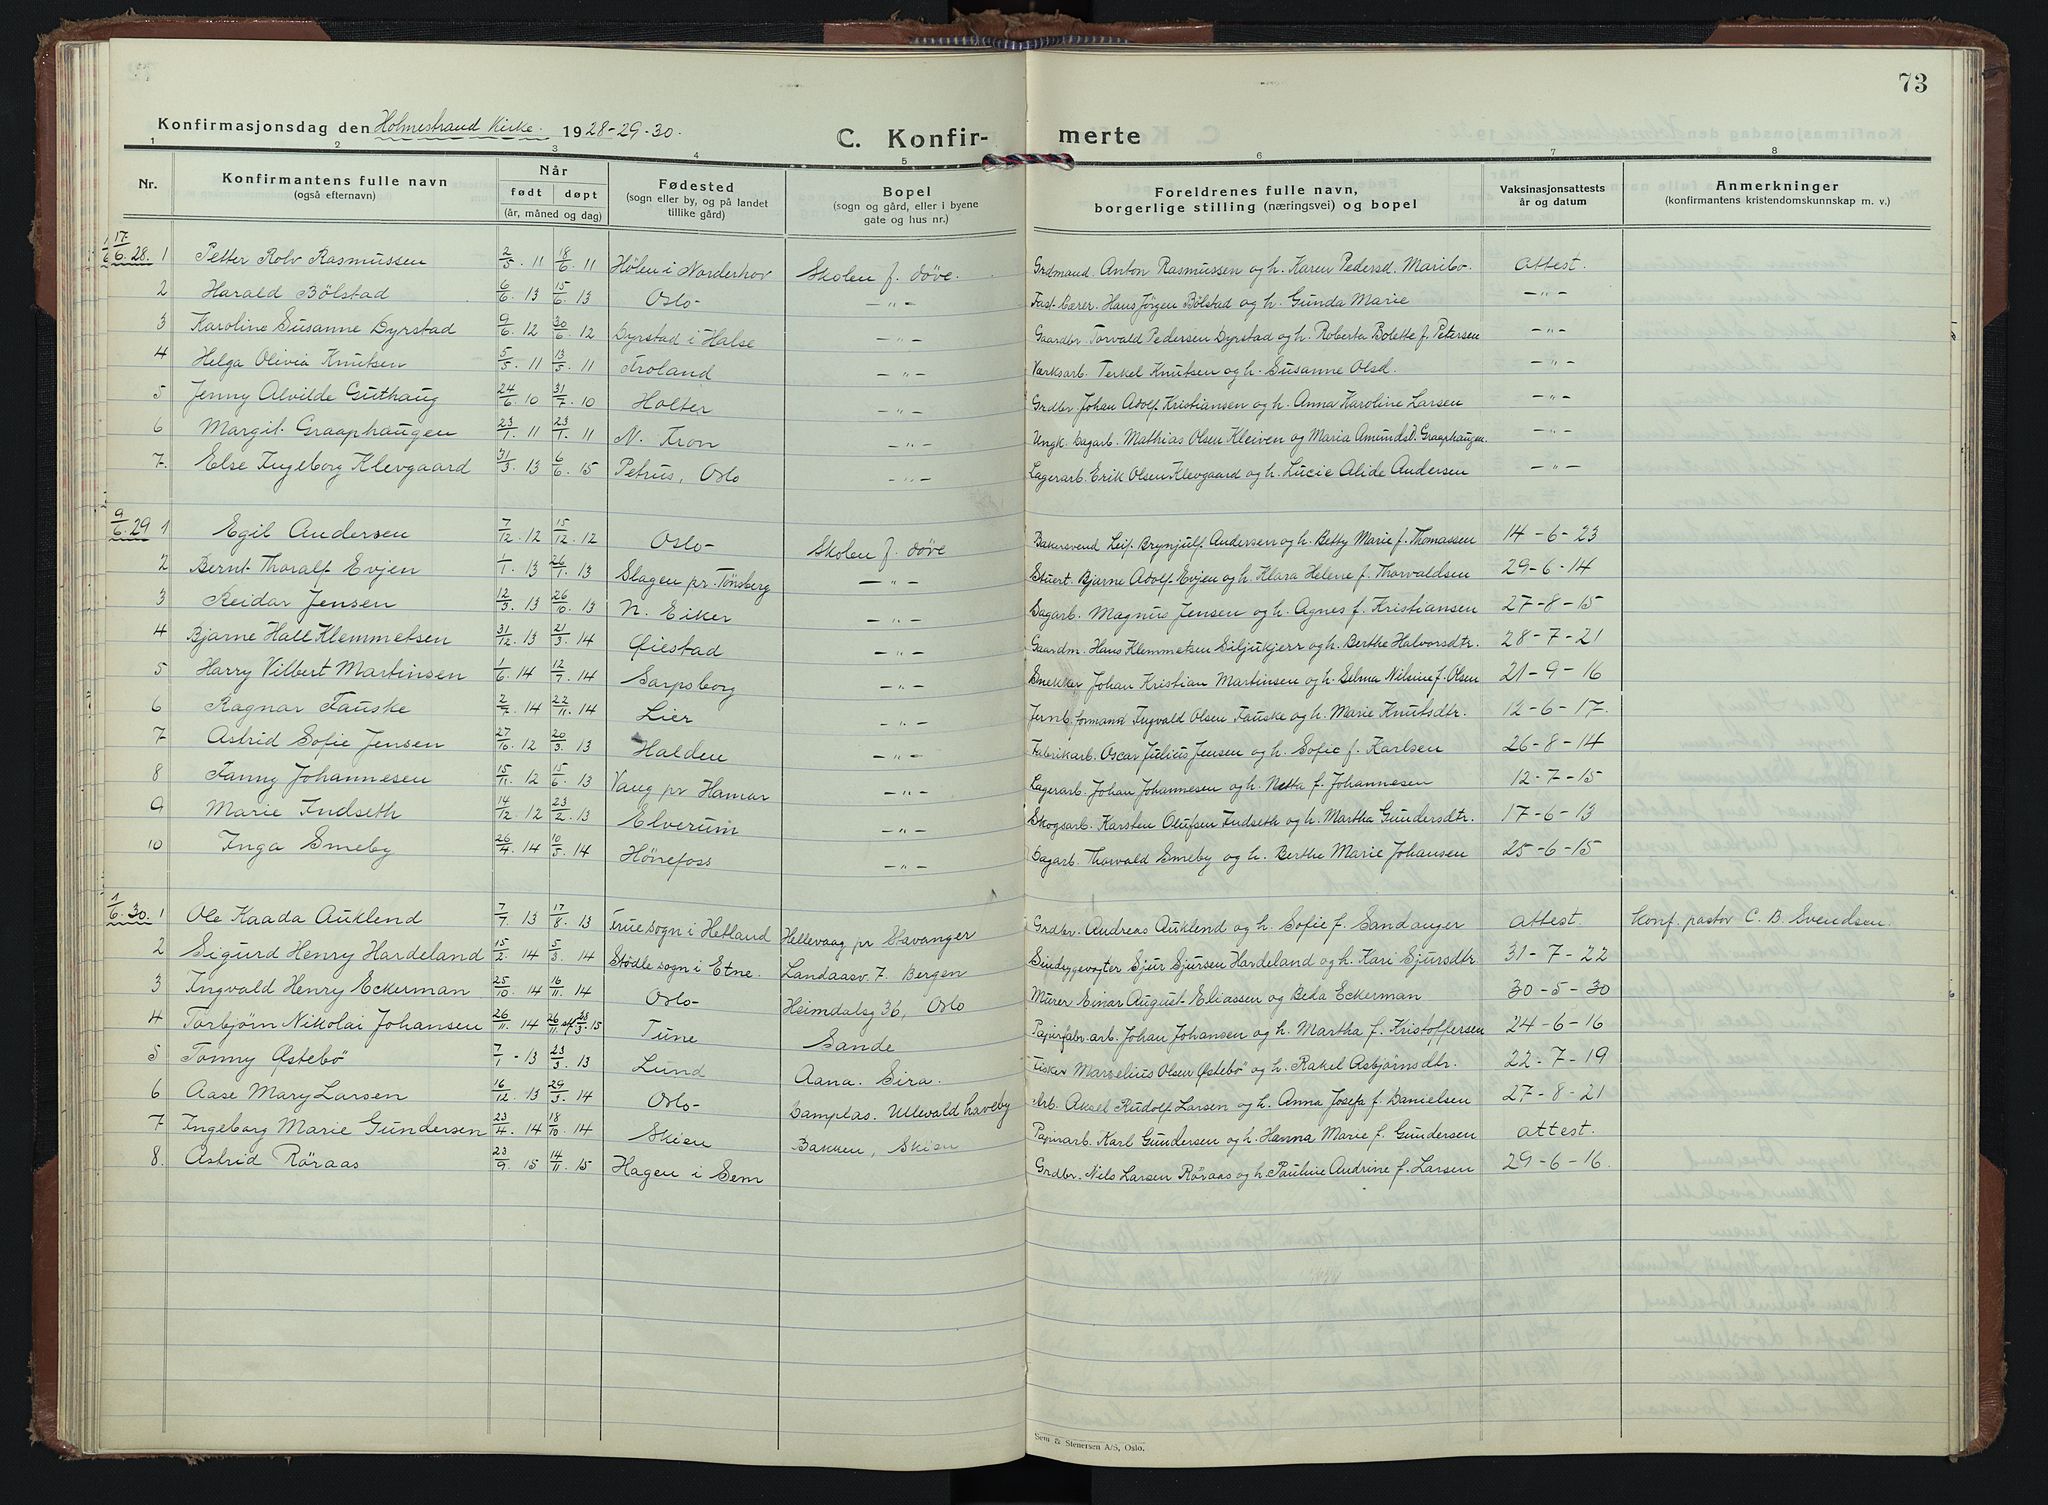 73
Konfirmasjonsdag den Holmestrand Kirke. 1928-29-30. C. Konfir- merte
1 2 3 4 5 6 7 8
Nr. Konfirmantens fulle navn (også efternavn) Når født døpt (år, måned og dag) Fødested (sogn eller by, og på landet tillike gård) Bopel (sogn og gård, eller i byene gate og hus nr.) Foreldrenes fulle navn, borgerlige stilling (næringsvei) og bopel Vaksinasjonsattests år og datum Anmerkninger (konfirmantens kristendomskunnskap m. v.)
17/6.28. 1 Petter Rolv Rasmussen 2/5. 11 18/6. 11 Hølen i Norderhov Skolen f. døve. Grdmand. Anton Rasmussen og h. Karen Pedersd. Maribo. attest.
2 Harald Bölstad 6/6. 13 15/6. 13 Oslo - " - Hans Jörgen Bölstad og h. Gunda Marie - " -
3 Karoline Susanne Dyrstad 9/6. 12 30/6. 12 Dyrstad i Halse - " - Gaardbr. Torvald Pedersen Dyrstad og h. Roberta Bolette f. Petersen - " -
4 Helga Olivia Knutsen 5/5. 11 13/5. 11 Froland - " - Verksarb. Terkel Knutsen og h. Susanne Olsd. - " -
5 Jenny Alvilde Guthaug 24/6. 10 31/7. 10 Holter - " - Grdbr. Johan Adolf Kristiansen og h. Anna Karoline Larsen - " -
6 Margit Graaphaugen 23/1. 11 23/1. 11 N. Fron - " - Ungk. dagarb. Mathias Olsen Kleiven og Maria Amundsd. Graaphaugen. - " -
7. Else Ingeborg Klevgaard 31/3. 13 6/6. 15 Petrus, Oslo - " - Lagerarb. Erik Olsen Klevgaard og h. Lucie Alide Andersen - " -
9/6.29 1 Egil Andersen 7/12. 12 15/12. 12 Oslo Skolen f. døve Bakersvend Leif Brynjulf Andersen og h. Betty Marie f. Thomassen 14-6-23
2 Bernt Thoralf Evjen 1/1. 13 26/1. 13 Slagen pr. Tönsberg - " - Stuert. Bjarne Adolf Evjen og h. Klara Helene f. Thorvaldsen 29-6-14
3 Reidar Jensen 12/3. 13 26/10. 13 N. Eiker - " - Sagarb. Magnus Jensen og h. Agnes f. Kristiansen 27-8-15
4 Bjarne Hall Klemmetsen 31/12. 13 21/3. 14 Øiestad - " - Gaardm. Hans Klemmetsen Siljukjerr og h. Berthe Halvorsdtr. 28-7-21
5 Harry Vilbert Martinsen 1/6. 14 12/7. 14 Sarpsborg - " - Snekker Johan Kristian Martinsen og h. Selma Nilsine f. Olsen 21-9-16
6 Ragnar Fauske 2/7. 14 22/11. 14 Lier - " - Jernb. formand Ingvald Olsen Fauske og h. Marie Knutsdtr. 12-6-17.
7 Astrid Sofie Jensen 27/10. 12 20/3. 13 Halden - " - Fabrikarb. Oscar Julius Jensen og h. Sofie f. Karlsen 26-8-14
8 Fanny Johannesen 15/11. 12 15/6. 13 Vang pr Hamar - " - Lagerarb. Johan Johannesen og h. Netta f. Johannesen 12-7-15
9 Marie Indseth 14/12. 12 23/2. 13 Elverum - " - Skogsarb. Karsten Olufsen Indseth og h. Martha Gundersdtr. 17-6-13
10 Inga Smeby 26/4. 14 10/5. 14 Hönefoss - " - Dagarb. Thorvald Smeby og h. Berthe Marie Johansen 25-6-15
1/6.30. 1 Ole Kaada Auklend 7/7. 13 17/8. 13 Fruesogn i Hetland Hellevaag pr Stavanger Grdbr. Andreas Auklend og h. Sofie f. Sandanger attest. Konf. pastor C. B. Svendsen.
2 Sigurd Henry Hardeland 15/2. 14 5/3. 14 Stødle sogn i Etne. Landaasv. 7. Bergen Sjur Sjursen Hardeland og h. Kari Sjursdtr 31-7-22
3 Ingvald Henry Eckerman 25/10. 14 16/11. 14 Oslo Heimdalsg 36, Oslo Murer Einar August Eliassen og Beda Eckerman 30-5-30
4 Torbjørn Nikolai Johansen 26/11. 14 26/11 st. 23/3. 15 Tune Sande Papirfabr. arb. Johan Johansen og h. Martha f. Kristoffersen 24-6-16
5 Tonny Østebö 7/1 - 13 23/3. 13 Lund Aana. Sira. Fisker Marselius Olsen Østebö og h. Rakel Asbjørnsdtr. 22-7-19
6 Aase Mary Larsen 16/12. 13 29/3. 14 Oslo Damplas. Ullevald haveby Arb. Aksel Rudolf Larsen og h. Anna Josefa f. Danielsen 27-8-21
7 Ingeborg Marie Gundersen 23/4. 14 18/10. 14 Skien Bakken, Skien Papirarb. Karl Gundersen og h. Hanna Marie f. Gundersen attest.
8. Astrid Röraas 23/9. 15 14/11. 15 Hagen i Sem Grdbr. Nils Larsen Röraas og h. Pauline Andrine f. Larsen 29-6-16.
Sem & Stenersen A/S, Oslo.